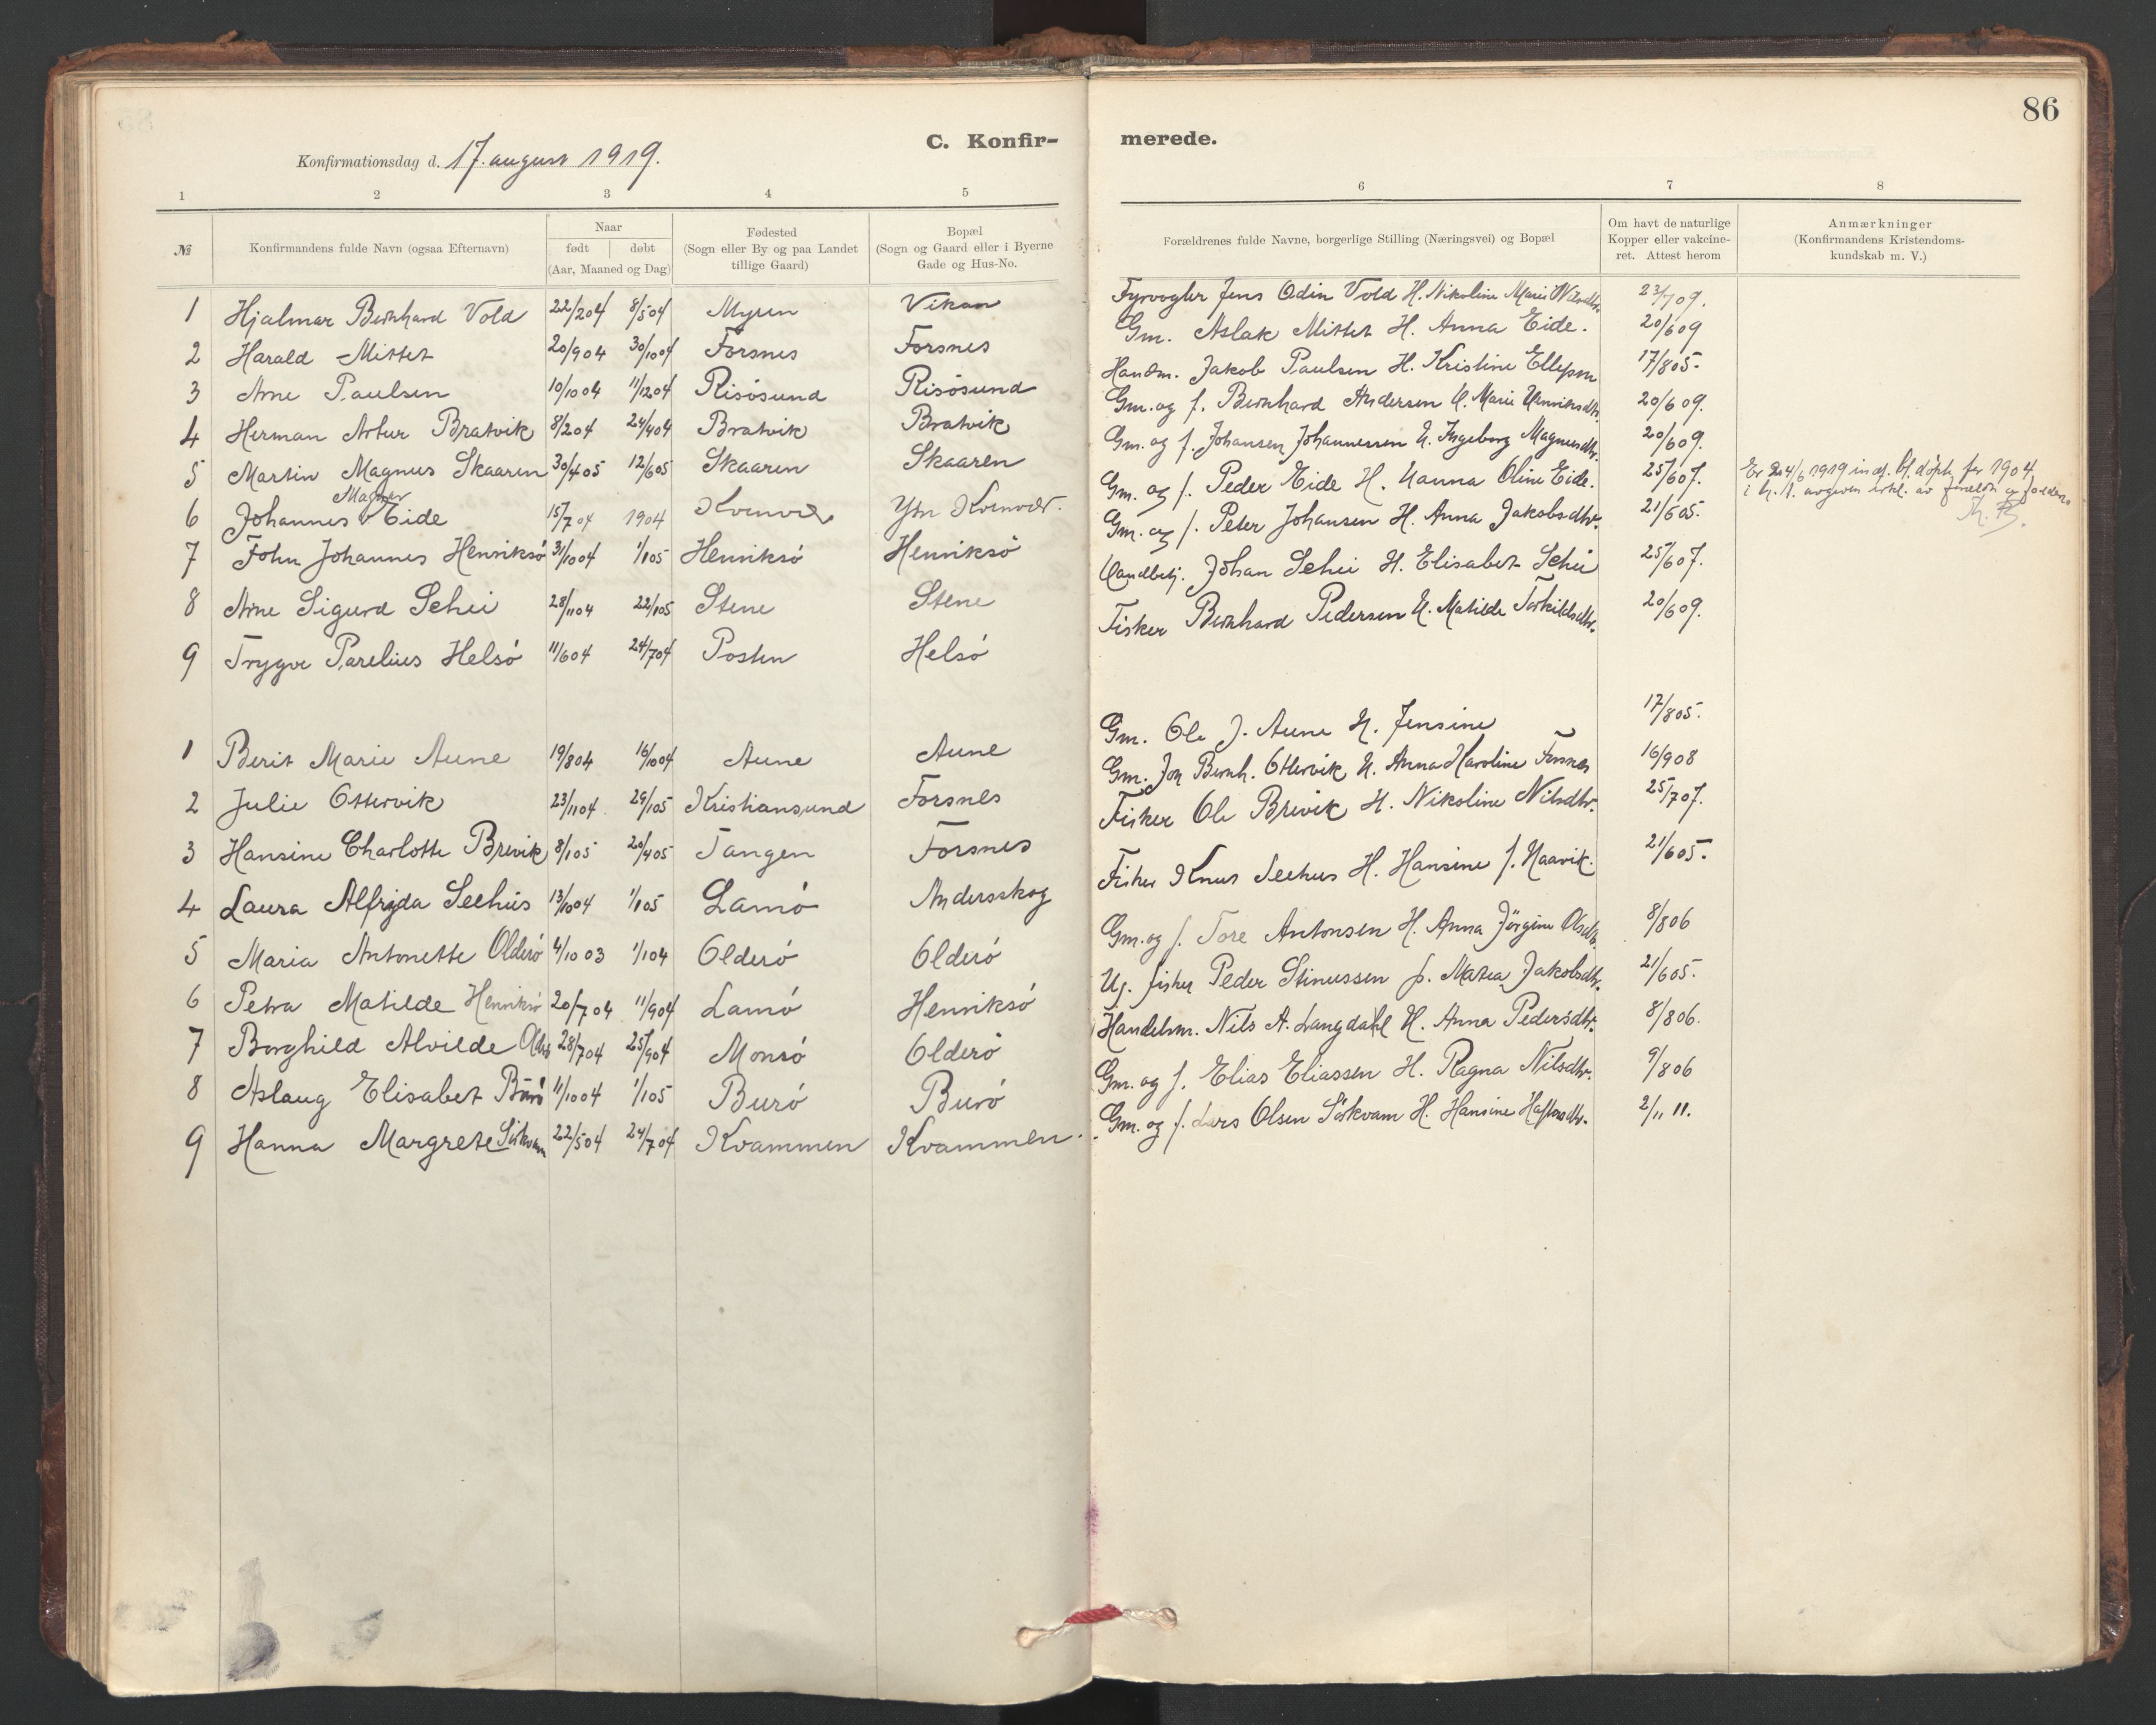 86
C. Konfir-merede.
Konfirmationsdag d. 17. august 1919.
1 2 3 4 5 6 7 8
№ Konfirmandens fulde Navn (ogsaa Efternavn) Naar født døbt (Aar, Maaned og Dag) Fødested (Sogn eller By og paa Landet tillige Gaard) Bopæl (Sogn og Gaard eller i Byerne Gade og Hus-No. Forældrenes fulde Navne, borgerlige Stilling (Næringsvei) og Bopæl Om havt de naturlige Kopper eller vakcineret. Attest herom Anmærkninger (Konfirmandens Kristendomskundskab m. V.)
1 Hjalmar Bernhard Vold 22/2 04 8/5 04 Myren Vikan Fyrvogter Jens Odin Vold H. Nikoline Marie 23/7 09.
2 Harald Mittet 20/9 04 30/10 04 Forsnes Forsnes Gm. Aslak Mittet H. Anna Eide. 20/6 09
3 Arne Paulsen 10/10 04 11/12 04 Risøsund Risøsund Handm. Jakob Paulsen H. Kristine Ellepsen 17/8 05.
4 Herman Artur Bratvik 8/2 04 24/4 04 Bratvik Bratvik Gm. og f. Bernhard Andersen H. Marie Henriksdtr. 20/6 09.
5 Martin Magnus Skaaren 30/4 05 12/6 05 Skaaren Skaaren Gm. og f. Johansen Johannessen H. Ingeborg Magnusdtr. 20/6 09.
6 Johannes Magner Eide 15/7 04 1904 Kvenvær Ytr Kvenvær. Gm. og f. Peder Eide H. Hanna Oline Eide. 25/6 07. Er 24/6 1919 indf. bl. døpte for 1904
7 John Johannes Henriksø 31/10 04 1/1 05 Henriksø Henriksø Gm. og f. Peter Johansen H. Anna Jakobsdtr. 21/6 05.
8 Arne Sigurd Schei 28/11 04 22/1 05 Stene Stene Handbetj. Johan Schei H. Elisabet Schei 25/6 07.
9 Trygve Parelius Helsø 11/6 04 24/7 04 Posten Helsø Fisker Bernhard Pedersen H. Matilde Torkildsdtr. 20/6 09.
1 Berit Marie Aune 19/8 04 16/10 04 Aune Aune Gm. Ole J. Aune H. Jensine 17/8 05.
2 Julie Ottervik 23/11 04 29/1 05 Kristiansund Forsnes Gm. Jon Bernh. Ottervik H. Anna Karoline Forsnes 16/9 08
3 Hansine Charlotte Brevik 8/1 05 20/4 05 Tangen Forsnes Fisker Ole Brevik H. Nikoline Nilsdtr. 25/7 07.
4 Laura Alfrida Seehus 13/10 04 1/1 05 Lamø Andersskog Fisker Knut Seehus H. Hansine f. Haavik. 21/6 05.
5 Maria Antonette Olderø 4/10 03 1/1 04 Olderø Olderø Gm. og f. Tore Antonsen H. Anna Jörgine Olsdtr. 8/8 06
6 Petra Matilde Henriksø 20/7 04 11/9 04 Lamø Henriksø Ug. fisker Peder Stinussen p. Matea Jakobsdtr. 21/6 05.
7 Borghild Alvilde 28/7 04 25/9 04 Monsø Olderø Handelsm. Nils A. Langdahl H. Anna Pedersdtr. 8/8 06.
8 Aslaug Elisabet Burø 11/10 04 1/1 05 Burø Burø Gm. og f. Elias Eliassen H. Ragna Nilsdtr. 9/8 06
9 Hanna Margrete Sørkvam 22/5 04 24/7 04 Kvammen Kvammen. Gm. og f. Lars Olsen Sörkvam H. Hansine Haftorsdtr. 2/11 11.